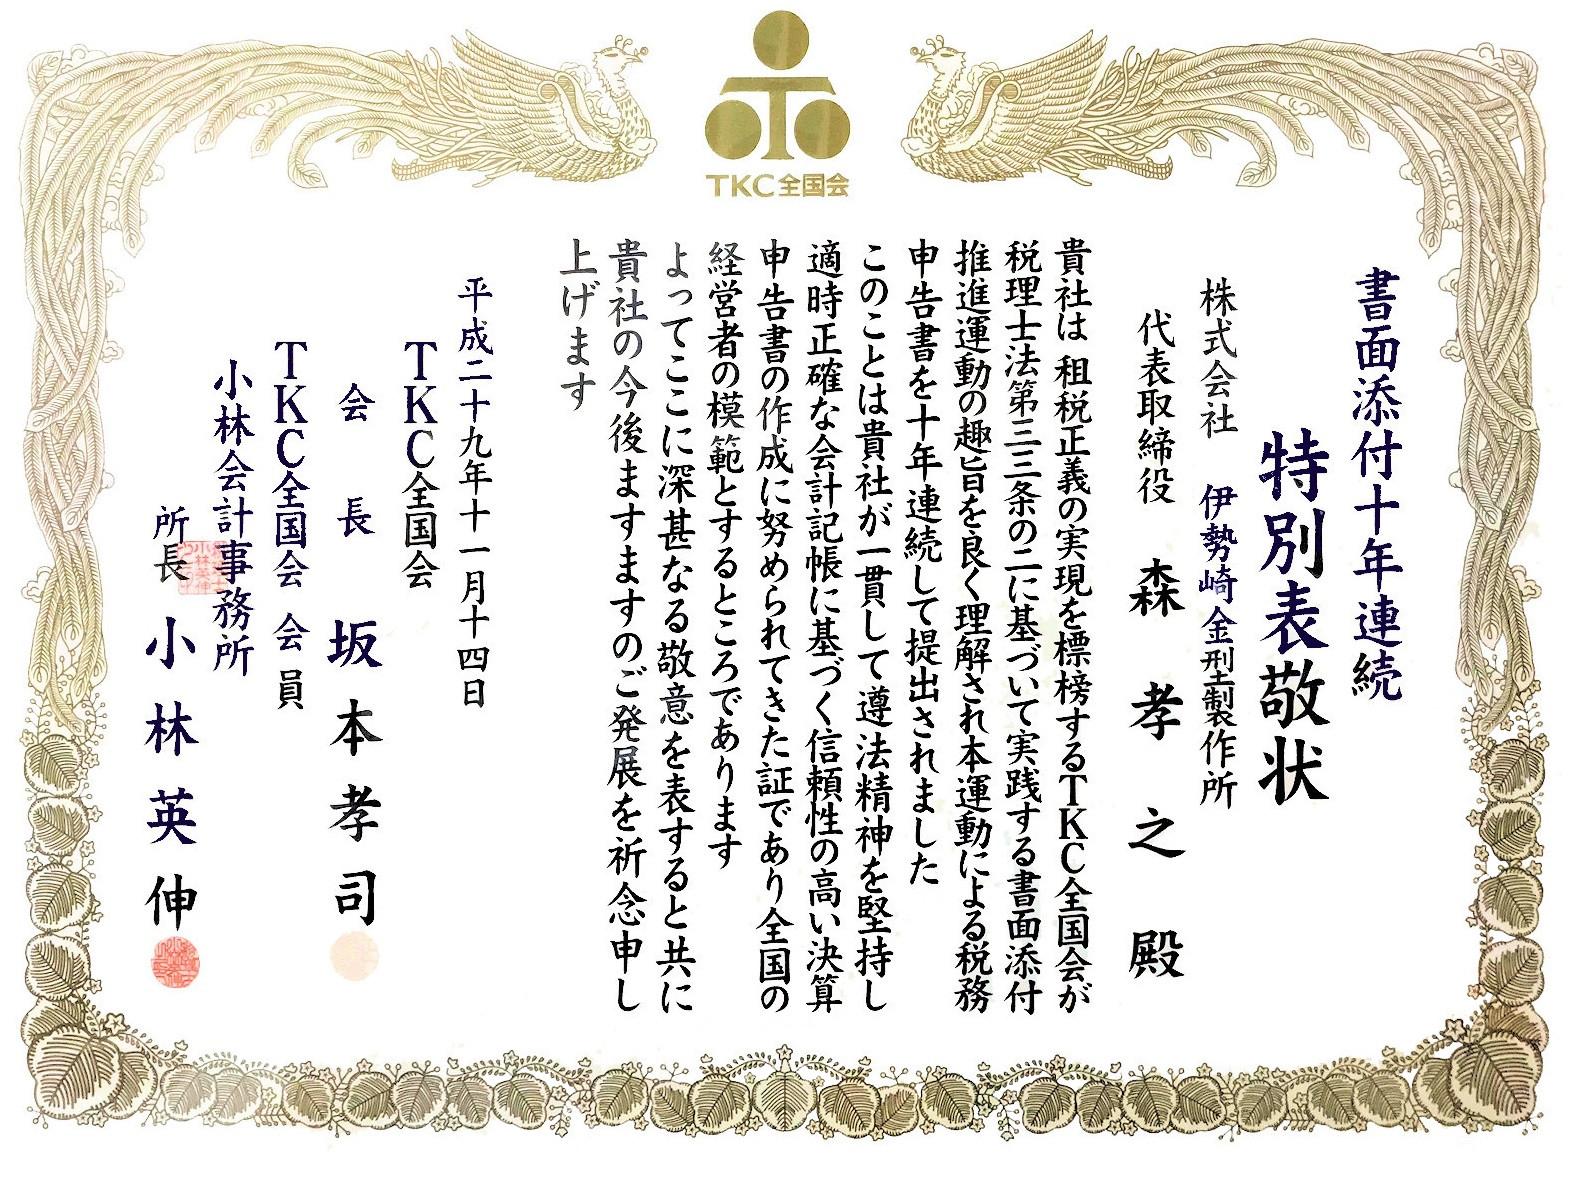 TKC全国会
書面添付十年連続
特別表敬状
株式会社 伊勢崎金型製作所
代表取締役 森孝之殿
貴社は 租税正義の実現を標榜するTKC全国会が
税理士法第三三条の二に基づいて実践する書面添付
推進運動の趣旨を良く理解され本運動による税務
申告書を十年連続して提出されました
このことは貴社が一貫して遵法精神を堅持し
適時正確な会計記帳に基づく信頼性の高い決算
申告書の作成に努められてきた証であり全国の
経営者の模範とするところであります
よってここに深甚なる敬意を表すると共に
貴社の今後ますますのご発展を祈念申し
上げます
平成二十九年十一月十四日
TKC全国会
会長 坂本孝司
TKC全国会 会員
小林会計事務所
所長 小林英伸